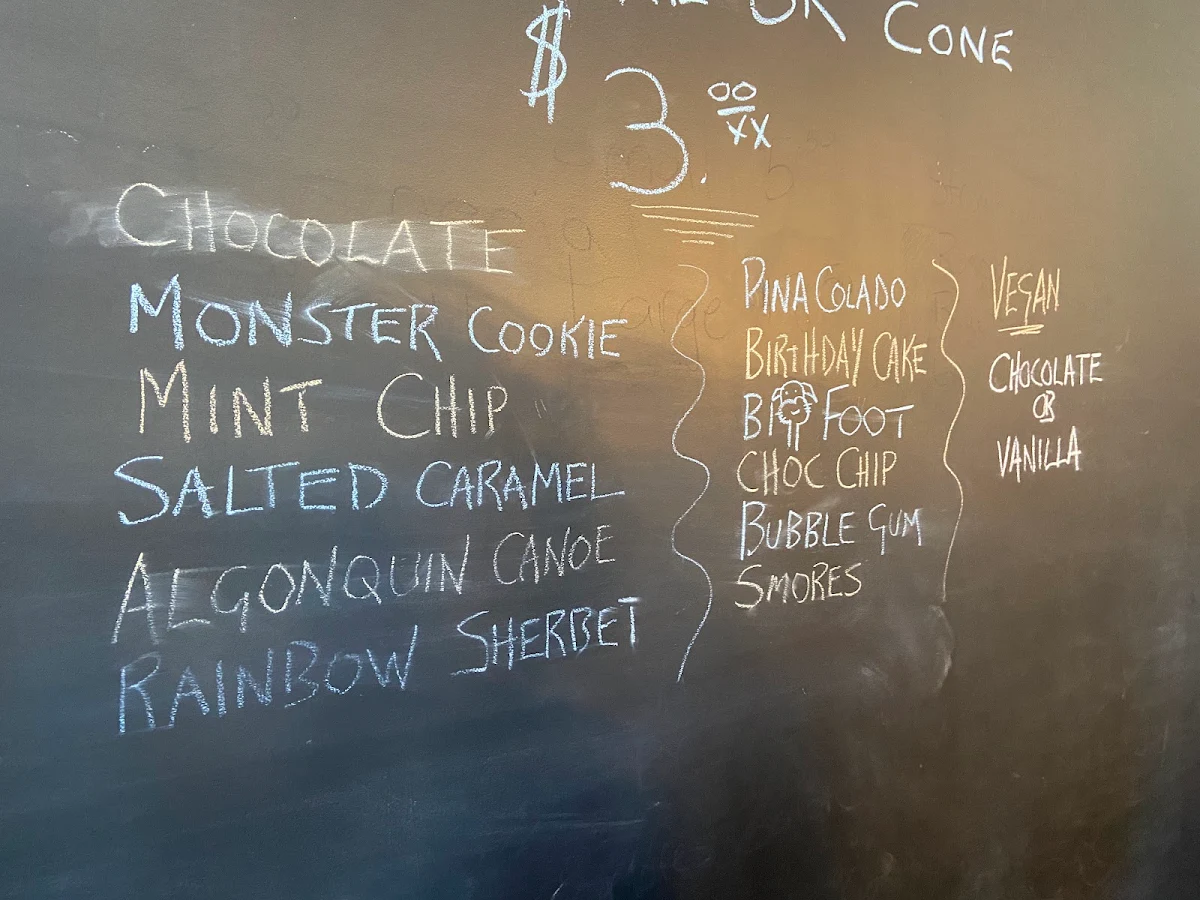 OR CONE
$3.00/XX
CHOCOLATE
MONSTER COOKIE
MINT CHIP
SALTED CARAMEL
ALGONQUIN CANOE
RAINBOW SHERBET
PINA COLADO
BIRTHDAY CAKE
BI FOOT
CHOC CHIP
BUBBLE GUM
SMORES
VEGAN
CHOCOLATE
OR
VANILLA